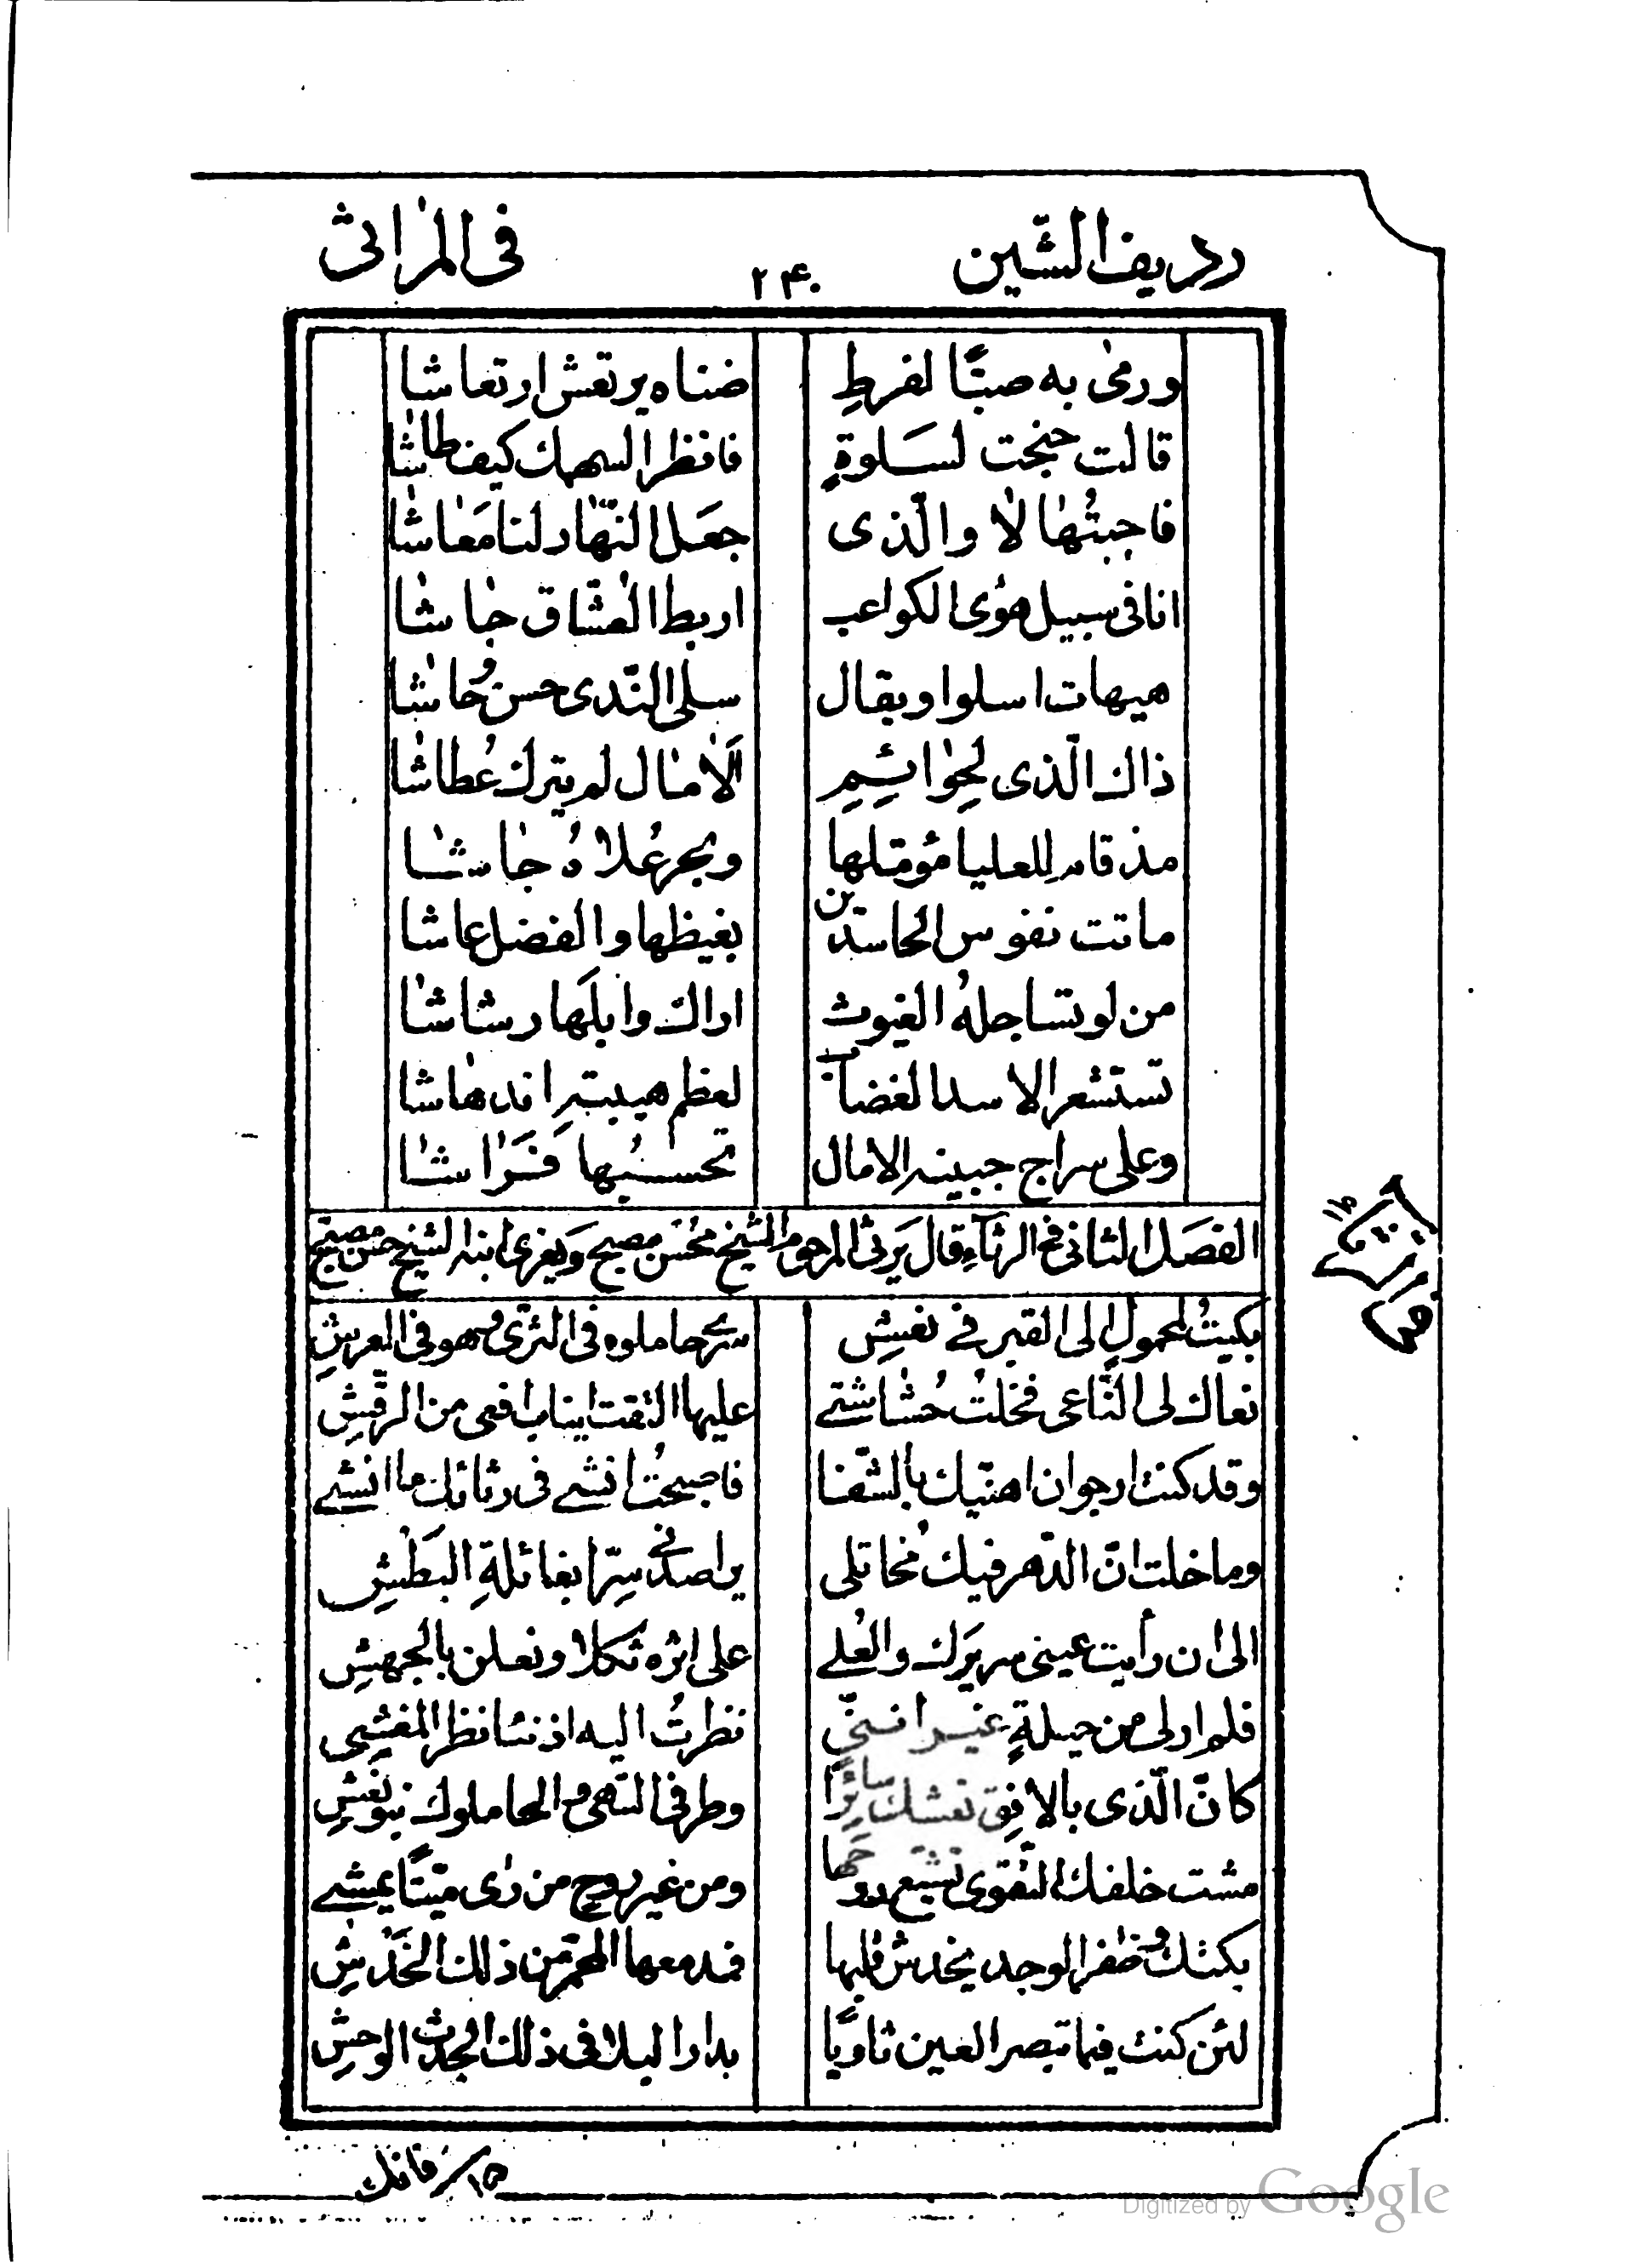 رديف الشّين ٢٤٠ فى المراثى
ورمىٰ به صبّاً لفرطِ ضناه يرتعش ارتعاشا
قالت جنحت لسَلوةٍ فانظر السهمك كيف طاشا
فاجبتُها لا والّذى جعَل النّهار لنا مَعاشا
انا فى سبيل هوى الكواعب اربط العشّاق جاشا
هيهات اسلوا ويقال سلى النّدى حسن وحاشا
ذاك الّذى لحِوائمِ الآمال لم يترك عُطاشا
مذ قام للعليا مؤمّلها وبحر عُلاهُ جاشا
ماتت نفوس الحاسدين بغيظها والفضل عاشا
من لو تساجلهُ الغيوث اراك وابلَها رشاشا
تستشعر الاسد الغضاب لعظم هيبته اندهاشا
وعلى سراج جبينه الامال تحسبُها فَرَاشا
الفصَل الثانى فى الرثآء قال يَرثى المرحوم الشيخ مُحسَن مصبح وَيعزى ابنه الشيخ حسَن مصبّح
بكيتُ لمحمولٍ الى القبر فى نعشِ سرى حاملوه فى الثرى وهو فى العرشِ
نعاك لى النّاعى فخلتُ حُشاشتى عليها التقت انياب افعى من الرقّشِ
وقد كنت ارجو ان اهنّيك بالشّفا فاصبحتُ انشى فى رثائك ما انشى
وما خلت انّ الدّهر فيك مُخاتلى يراصدنى سِرّا بغائلةِ البَطشِ
الى ان رأيت عينى سريرَك والعُلى على اثره ثكلا وتعلن بالجهشِ
فلم ار لى من حيلةٍ غير انّنى نظرتُ اليه اذ نئا نظر المغشِى
كانّ الّذى بالافِق نعشك سائرًا وطرفى السّهى والحاملوك بنو نعشِ
مشت خلفك التقوى تشيّع روحها ومن غير روحٍ من رٰى ميّتاً يمشى
بكتك وظفر الوجد يخدش قلبها فمدمعها المحمرّ من ذلك الخَدْشِ
لئن كنت فيما تبصر العين ثاويًا بدار البلا فى ذلك الجدث الوحشِ
فانك